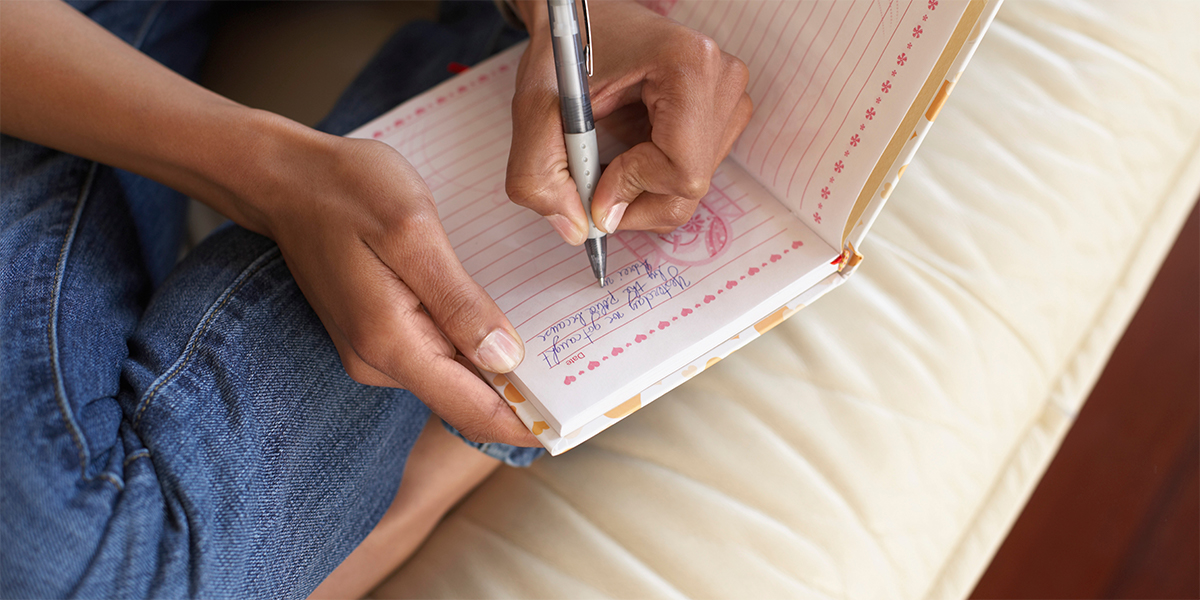 Date
Yesterday we got caught
by the Police because